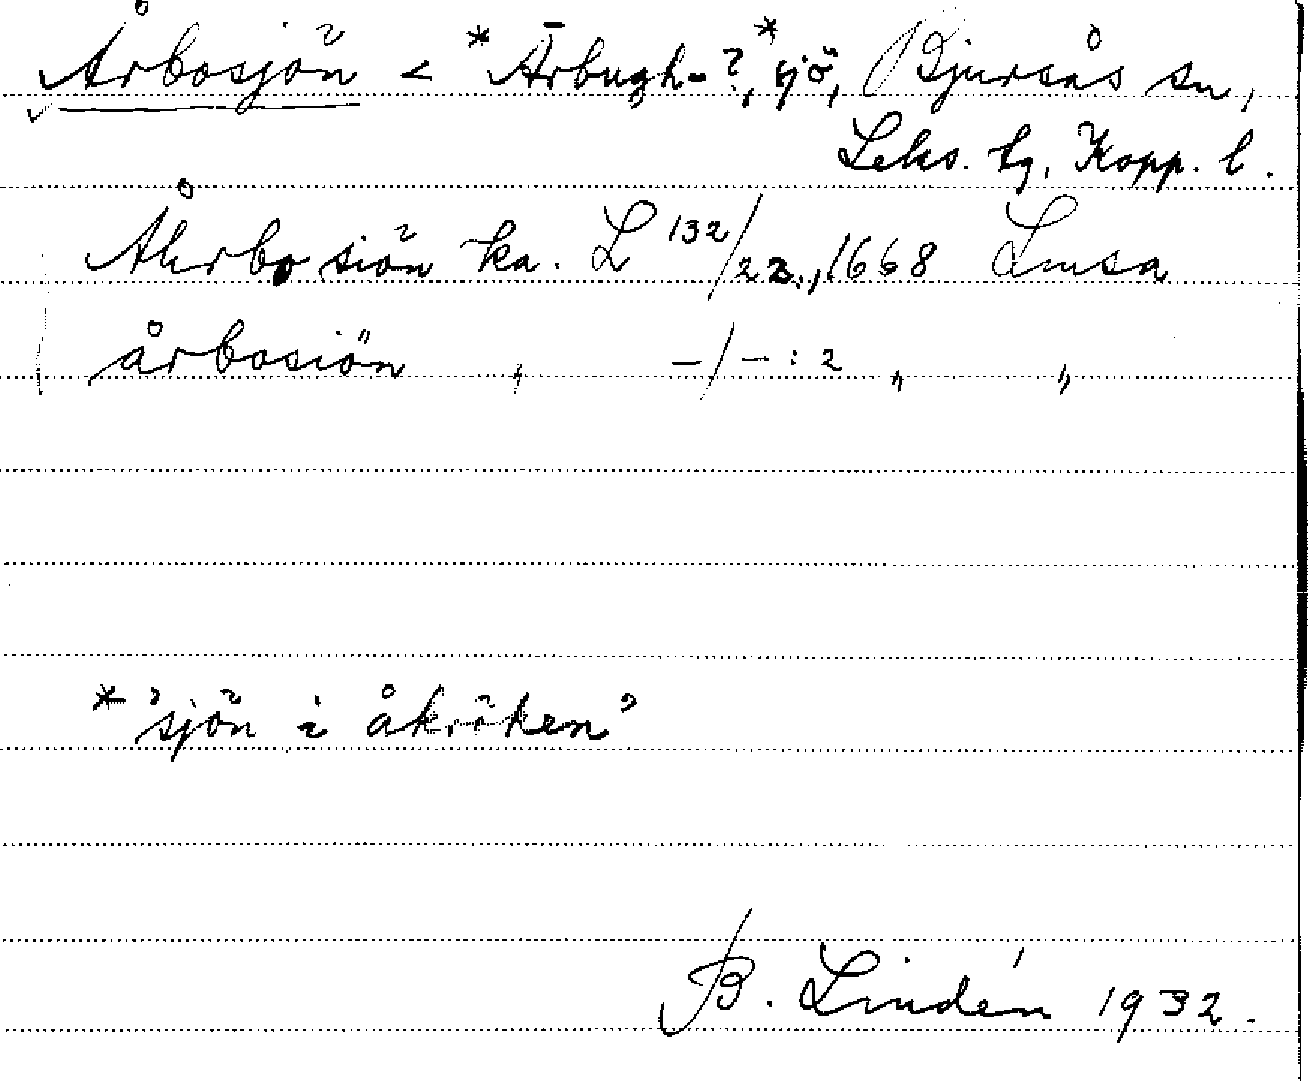 Årbosjön < *Ārbugh-?, *sjö, Bjursås sn,
Leks. tg, Kopp. l.
Åhrbo siön ka. L 132/22, 1668 Lmsa
årbosiön " —/—:2 " "
* "sjön i åkröken"
B. Lindén 1932.